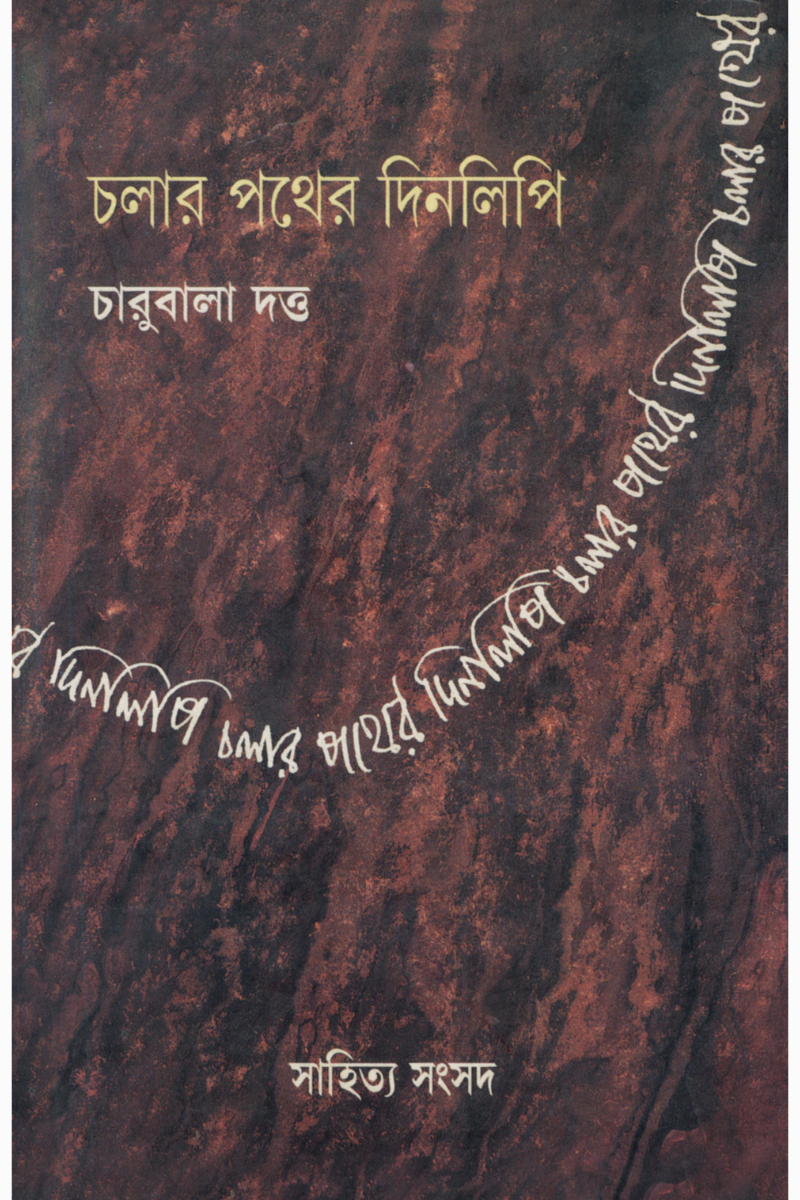 চলার পথের দিনলিপি
চারুবালা দত্ত
র দিনলিপি চলার পথের দিনলিপি চলার পথের দিনলিপি চলার পথের
সাহিত্য সংসদ